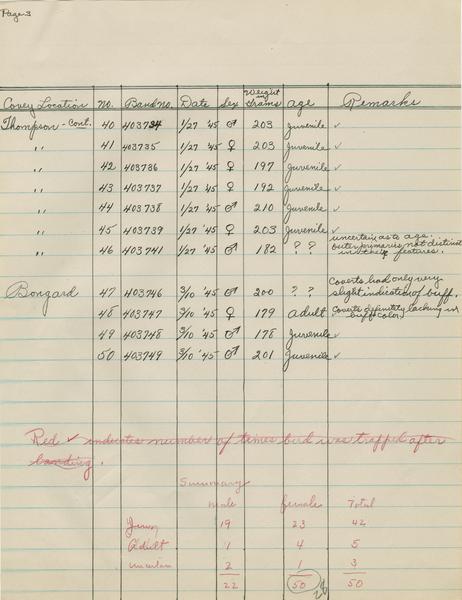 Page 3
Covey Location No. Band no. Date Sex Weight in Grams age Remarks
Thompson - Cont. 40 403734 1/27 '45 ♂ 203 Juvenile ✓
" 41 403735 1/27 '45 ♀ 203 Juvenile ✓
" 42 403736 1/27 '45 ♀ 197 Juvenile ✓
" 43 403737 1/27 '45 ♀ 192 Juvenile ✓
" 44 403738 1/27 '45 ♂ 210 Juvenile ✓
" 45 403739 1/27 '45 ♀ 203 Juvenile ✓
" 46 403741 1/27 '45 ♂ 182 ? ? uncertain as to age.
outer primaries not distinct
in their features.
Bongard 47 403746 3/10 '45 ♂ 200 ? ? Coverts had only very
slight indication of buff.
48 403747 3/10 '45 ♀ 179 adult Coverts definitely lacking in
buff color
49 403748 3/10 '45 ♂ 178 Juvenile ✓
50 403749 3/10 '45 ♂ 201 Juvenile ✓
Red ✓ indicates number of times bird was trapped after
banding.
Summary
male female Total
Young 19 23 42
Adult 1 4 5
uncertain 2 1 3
22 50 28 50